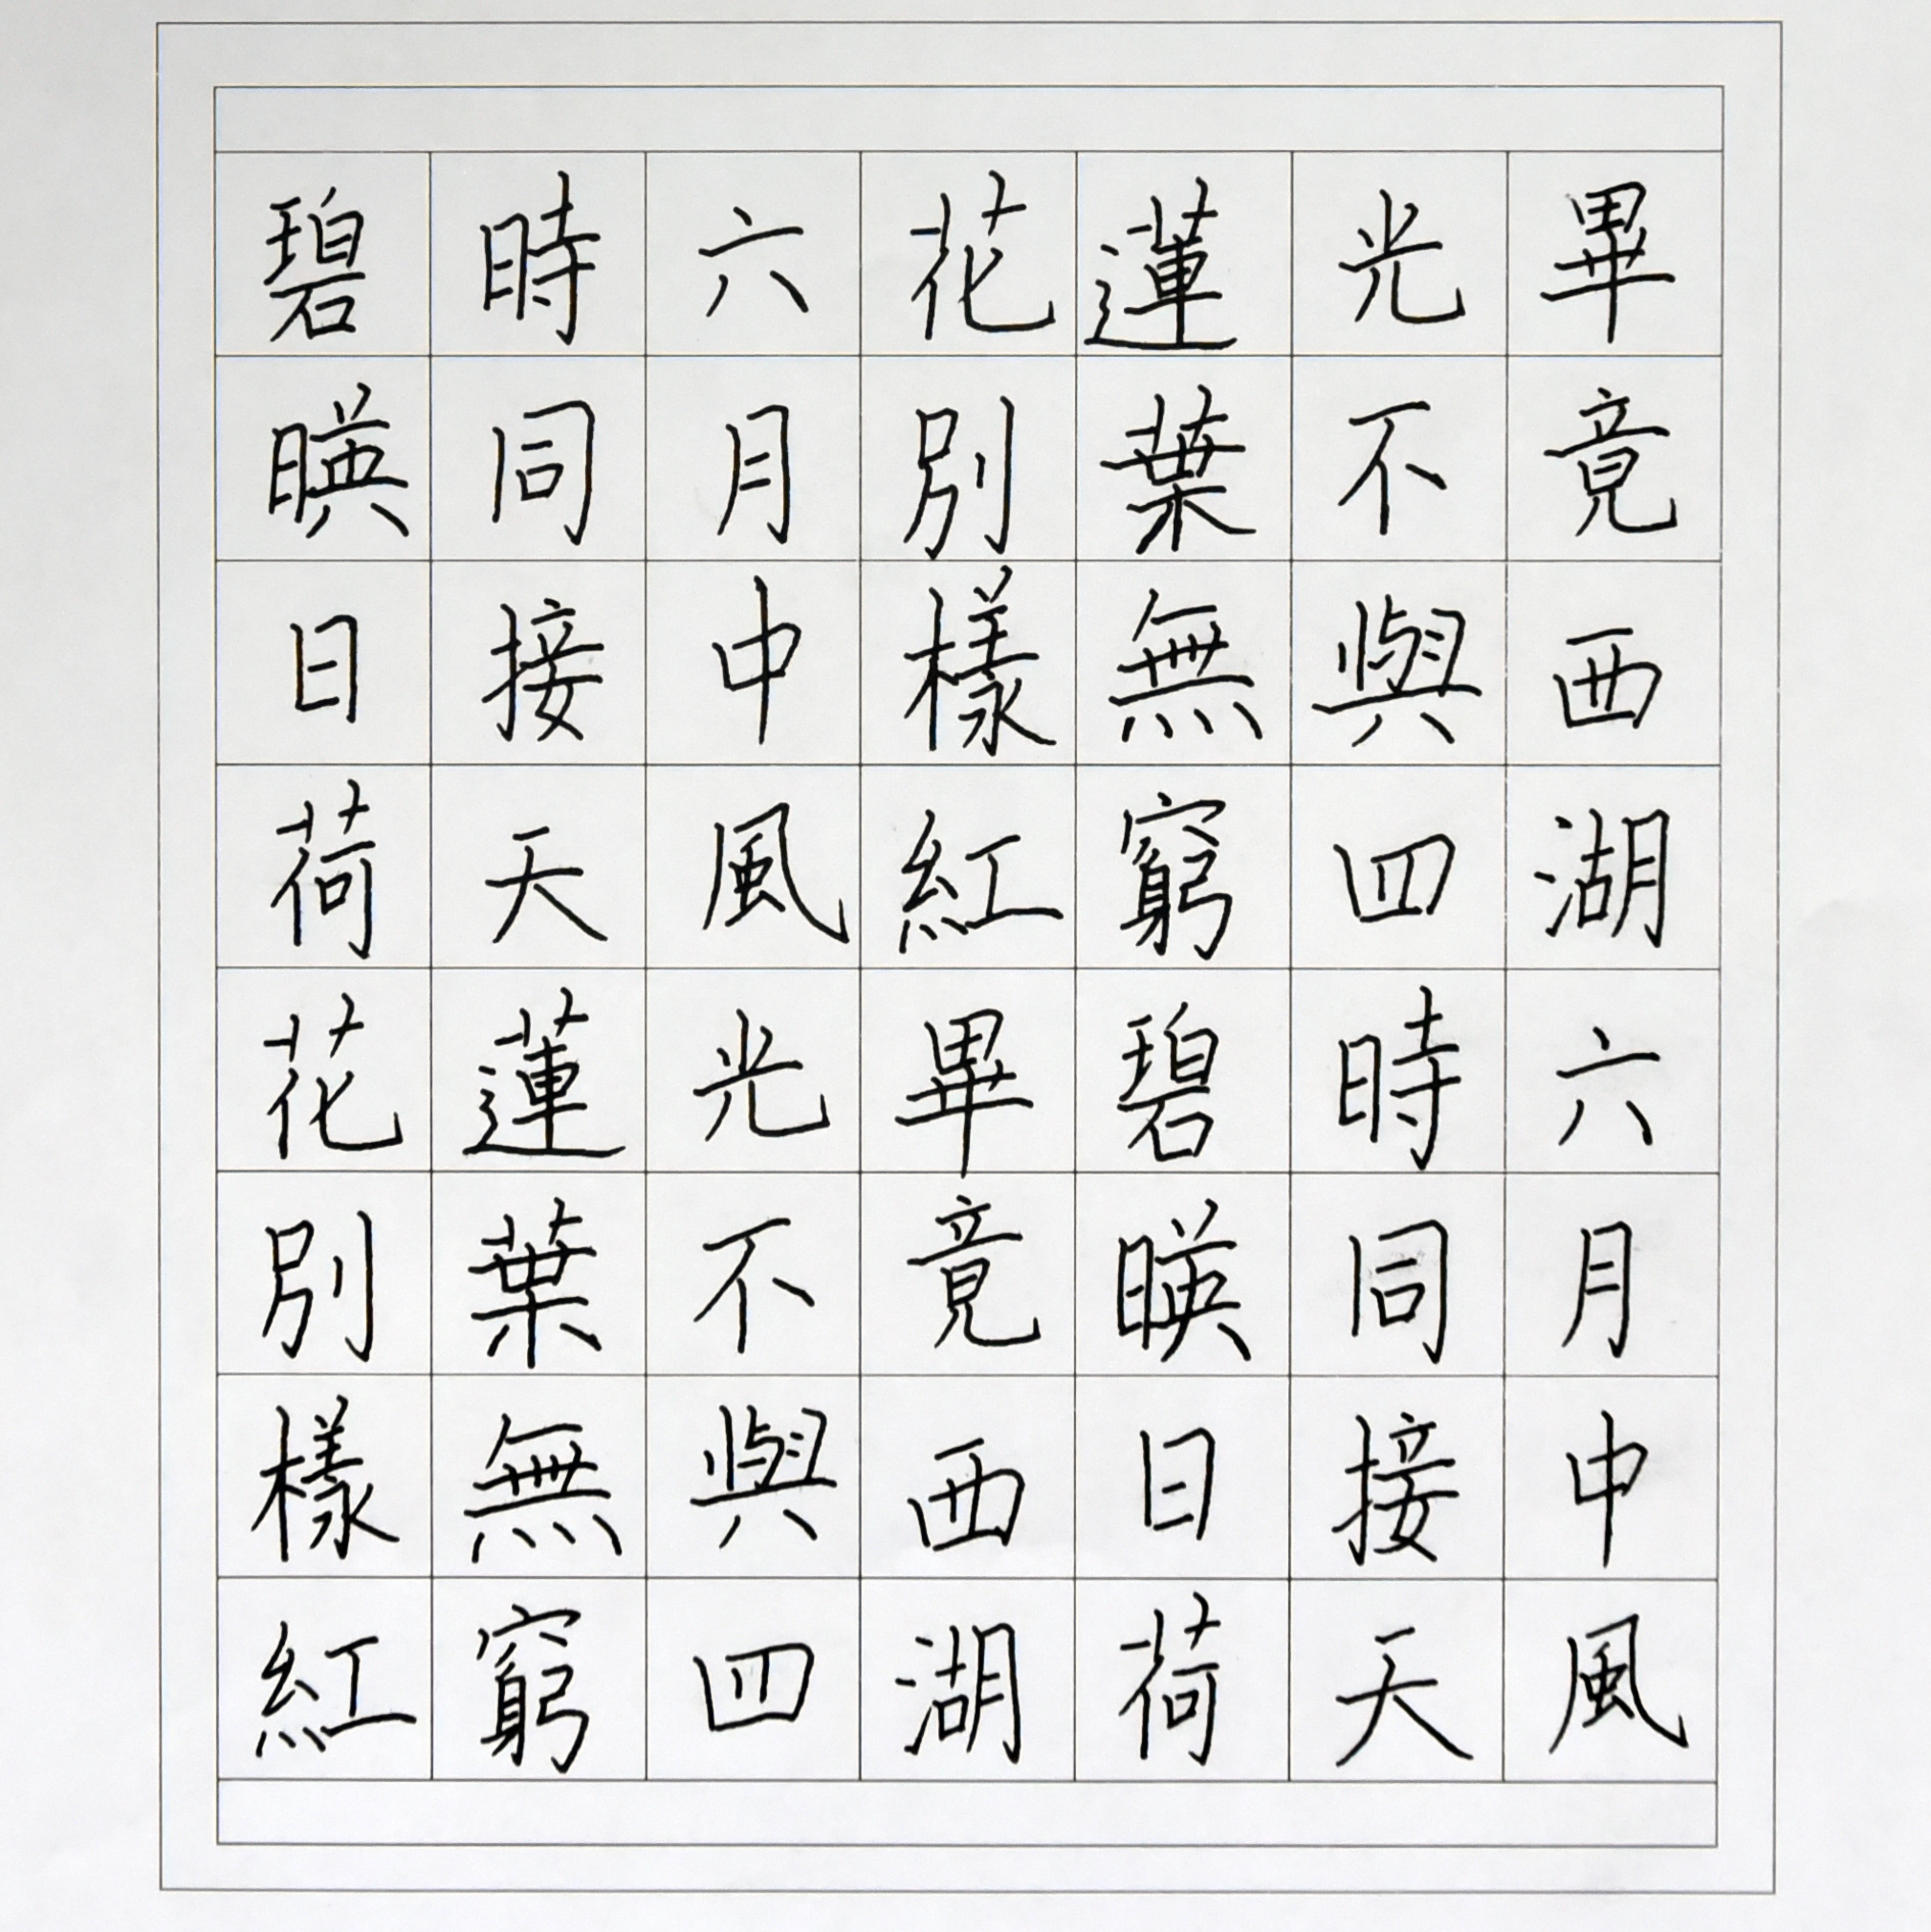 畢竟西湖六月中風
光不與四時同接天
蓮葉無窮碧暎日荷
花別樣紅畢竟西湖
六月中風光不與四
時同接天蓮葉無窮
碧暎日荷花別樣紅